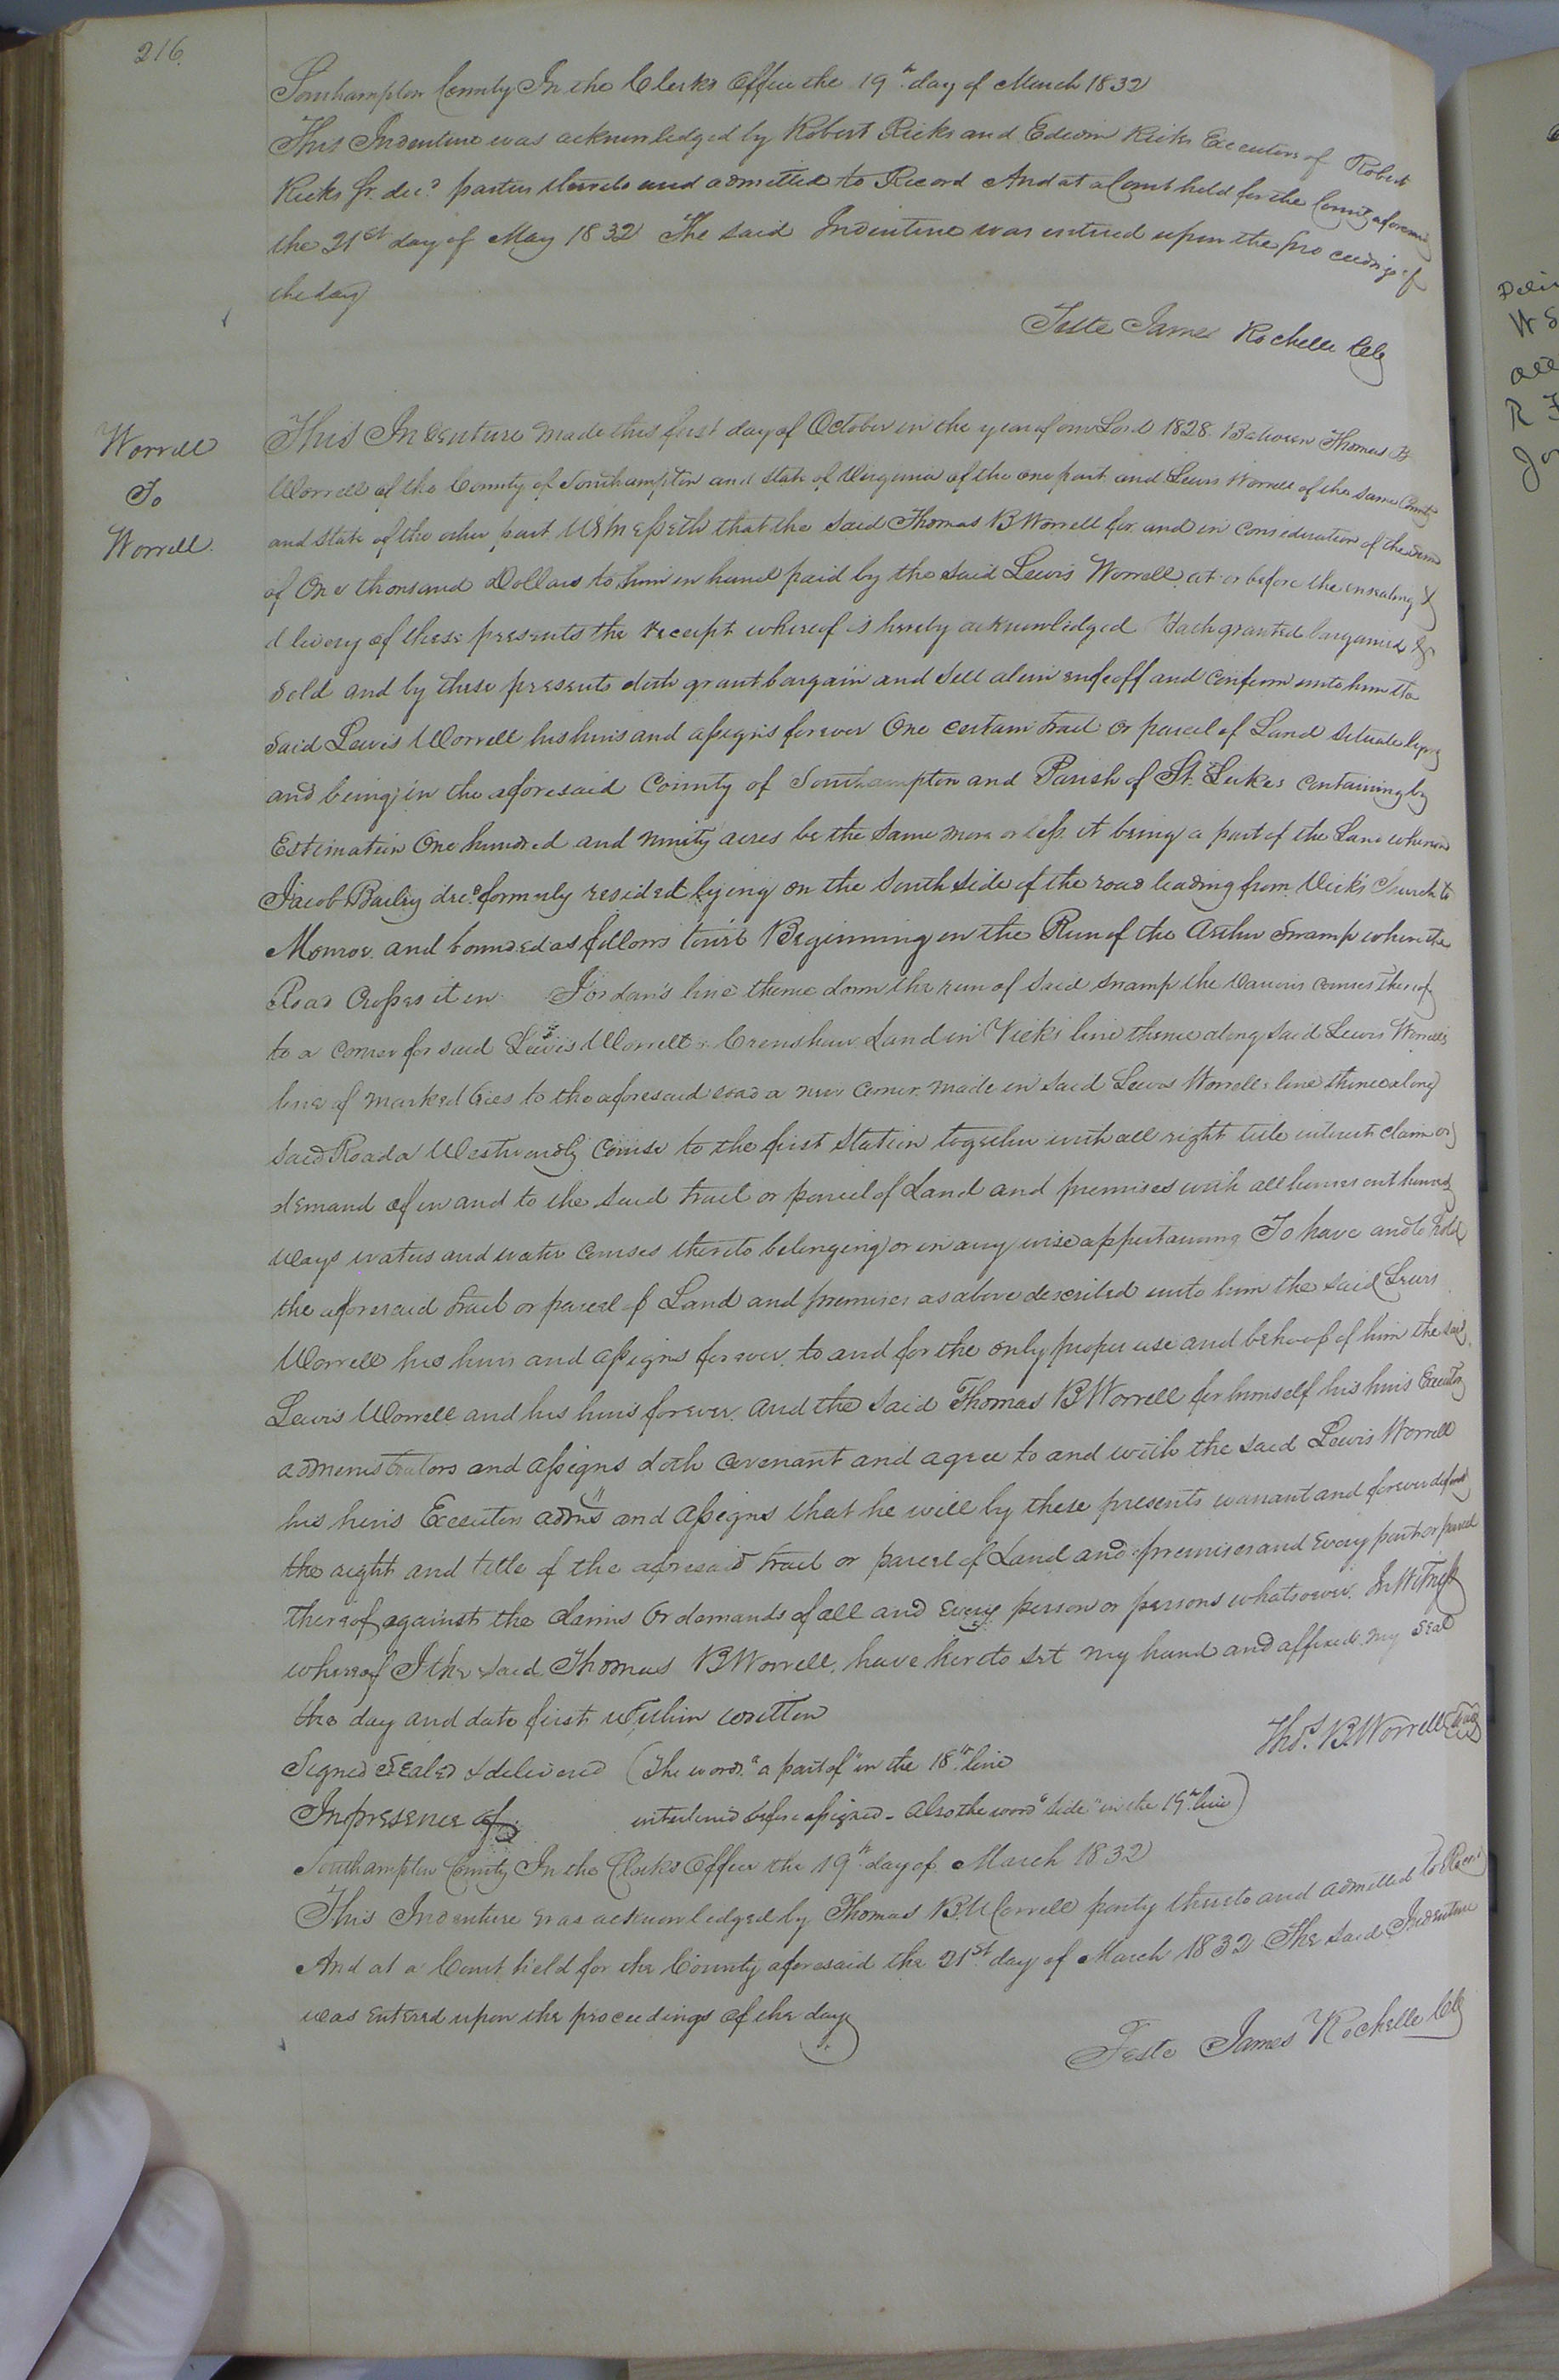 216.
Southampton County In the Clerks Office the 19th day of March 1832
This Indenture was acknowledged by Robert Ricks and Edwin Ricks Executors of Robert
Ricks Sr. decd parties thereto and admitted to Record And at a Court held for the County aforesaid
the 21st day of May 1832 The said Indenture was entered upon the proceedings of
the day
Teste James Rochelle Clk
Worrell
To
Worrell.
This Indenture made this first day of October in the year of our Lord 1828. Between Thomas B
Worrell of the County of Southampton and State of Virginia of the one part and Lewis Worrell of the same County
and State of the other part Witnesseth that the said Thomas B Worrell for and in consideration of the sum
of One thousand Dollars to him in hand paid by the said Lewis Worrell at or before the ensealing &
dlivery of these presents the receipt whereof is hereby acknowledged Hath granted bargained &
sold and by these presents doth grant bargain and sell alein enfeoff and confirm unto him the
said Lewis Worrell his heirs and assigns forever One certain tract or parcel of Land situate lying
and being in the aforesaid County of Southampton and Parish of St. Lukes containing by
Estimation One hundred and ninety acres be the same more or less it being a part of the Land whereon
Jacob Bailey decd formerly resided lying on the South side of the road leading from Vick's Church to
Monroe and bounded as follows towit Beginning on the Run of the Arthur Swamp where the
Road Crosses it in Jordan's line thence down the run of said swamp the various courses thereof
to a corner for said Lewis Worrell & Crenshaw Land in Vicks line thence along said Lewis Worrells
line of marked trees to the aforesaid road a new corner made in said Lewis Worrells line thence along
said Road a Westwardly course to the first Station together with all right title interest claim or
demand of in and to the said tract or parcel of Land and premises with all houses out houses
ways waters and water courses thereto belonging or in any wise appertaining To have and to hold
the aforesaid tract or parcel of Land and premises as above described unto him the said Lewis
Worrell his heirs and assigns forever to and for the only proper use and behoof of him the said
Lewis Worrell and his heirs forever. And the said Thomas B Worrell for himself his heirs Executors
administrators and assigns doth covenant and agree to and with the said Lewis Worrell
his heirs Executors admrs and assigns that he will by these presents warrant and forever defend
the right and title of the aforesaid tract or parcel of Land and premises and every part or parcel
thereof against the claims or demands of all and every person or persons whatsoever. In Witness
whereof I the said Thomas B Worrell have hereto set my hand and affixed my seal
the day and date first within written
Thos. B. Worrell Seal
Signed Sealed & delivered (The words "a part of" in the 18th line
In presence of interlined before assigned - also the word "side" in the 19th line)
Southampton County In the Clerks Office the 19th day of March 1832
This Indenture was acknowledged by Thomas B. Worrell party thereto and admitted to Record
And at a Court held for the County aforesaid the 21st day of March 1832 The said Indenture
was entered upon the proceedings of the day
Teste James Rochelle Clk